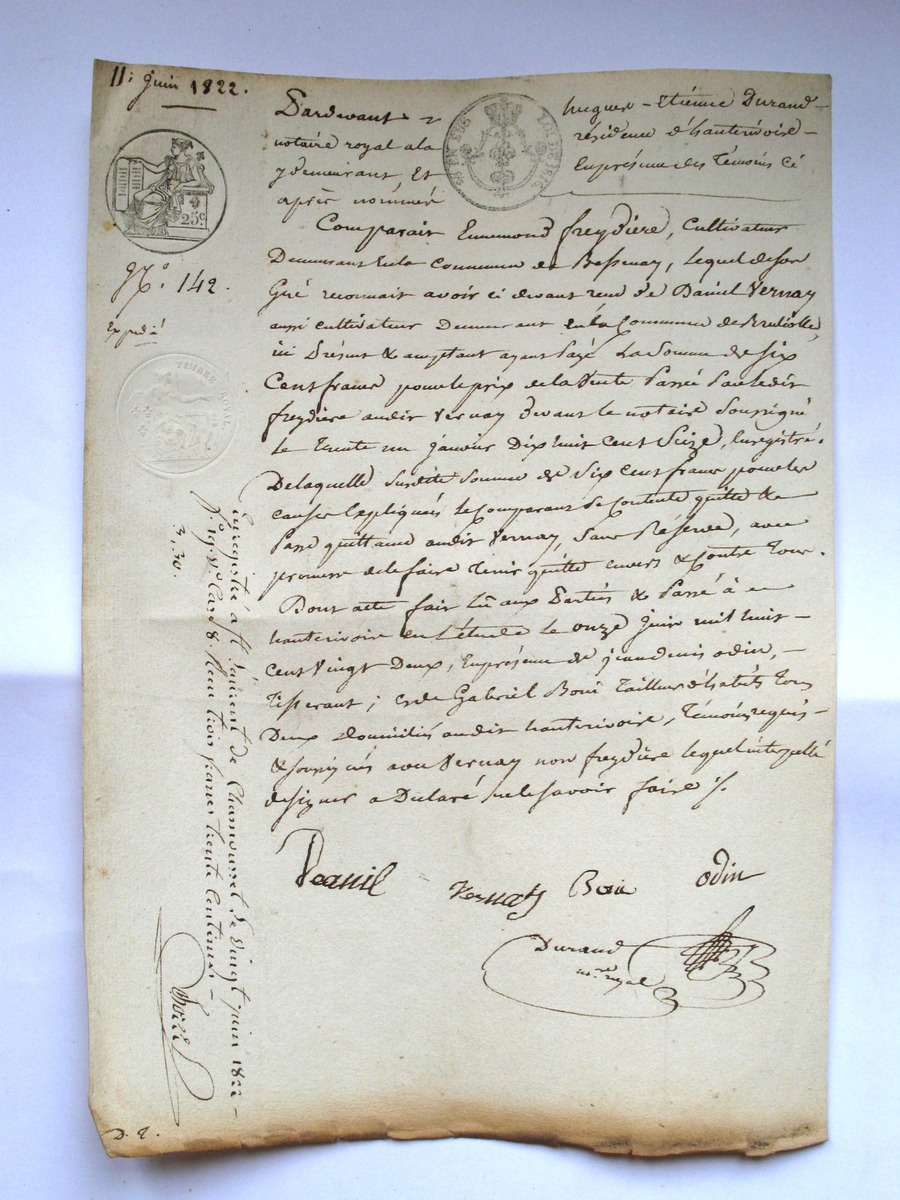 11: juin 1822.
Pardevant hugues - Etienne Durand
notaire royal a la résidence d'hauterivoire -
y demeurant et En présence des témoins ci
après nommés
Comparait Ennemond freydière, Cultivateur
Demeurant en la commune de Bessenay, lequel de son
Gré reconnait avoir ci devant reçu de Daniel Vernay
aussi cultivateur Demeurant en la Commune de Brulliolle,
ici Présent & acceptant ayant Payé La Somme de Six
Cent francs pour le prix de la Vente Passée Par le dit
freydière au dit Vernay devant le notaire Soussigné
Le trente un janvier Dix huit Cent Seize, Enregistré.
De laquelle susdite Somme de Six Cent francs pour les
causes Expliqués le Comparant Se Contente quitte &
Passe quittance au dit Vernay, Sans Réserve, avec
promesse de le faire tenir quitte envers & Contre Tous.
Dont acte fait lû aux Parties & Passé à
hauterivoire en L'étude Le onze juin mil huit -
Cent Vingt Deux, En présence de jean denis odin, -
Tisserant; & de Gabriel Boui Tailleur d'habits Tous
Deux domiciliés au dit hauterivoire, témoins requis -
& soussignés avec Vernay non freydière lequel interpellé
de signer a Déclaré ne le savoir faire
Vernay Boui odin
Durand
n.re royal
25.c
N.o 142.
Expédié
TIMBRE ROYAL
Enregistré à St Laurent de Chamousset le vingt juin 1822 -
f.o 19. v.o Case 8. Reçu trois francs trente Centimes -
3,30.
D. 2.